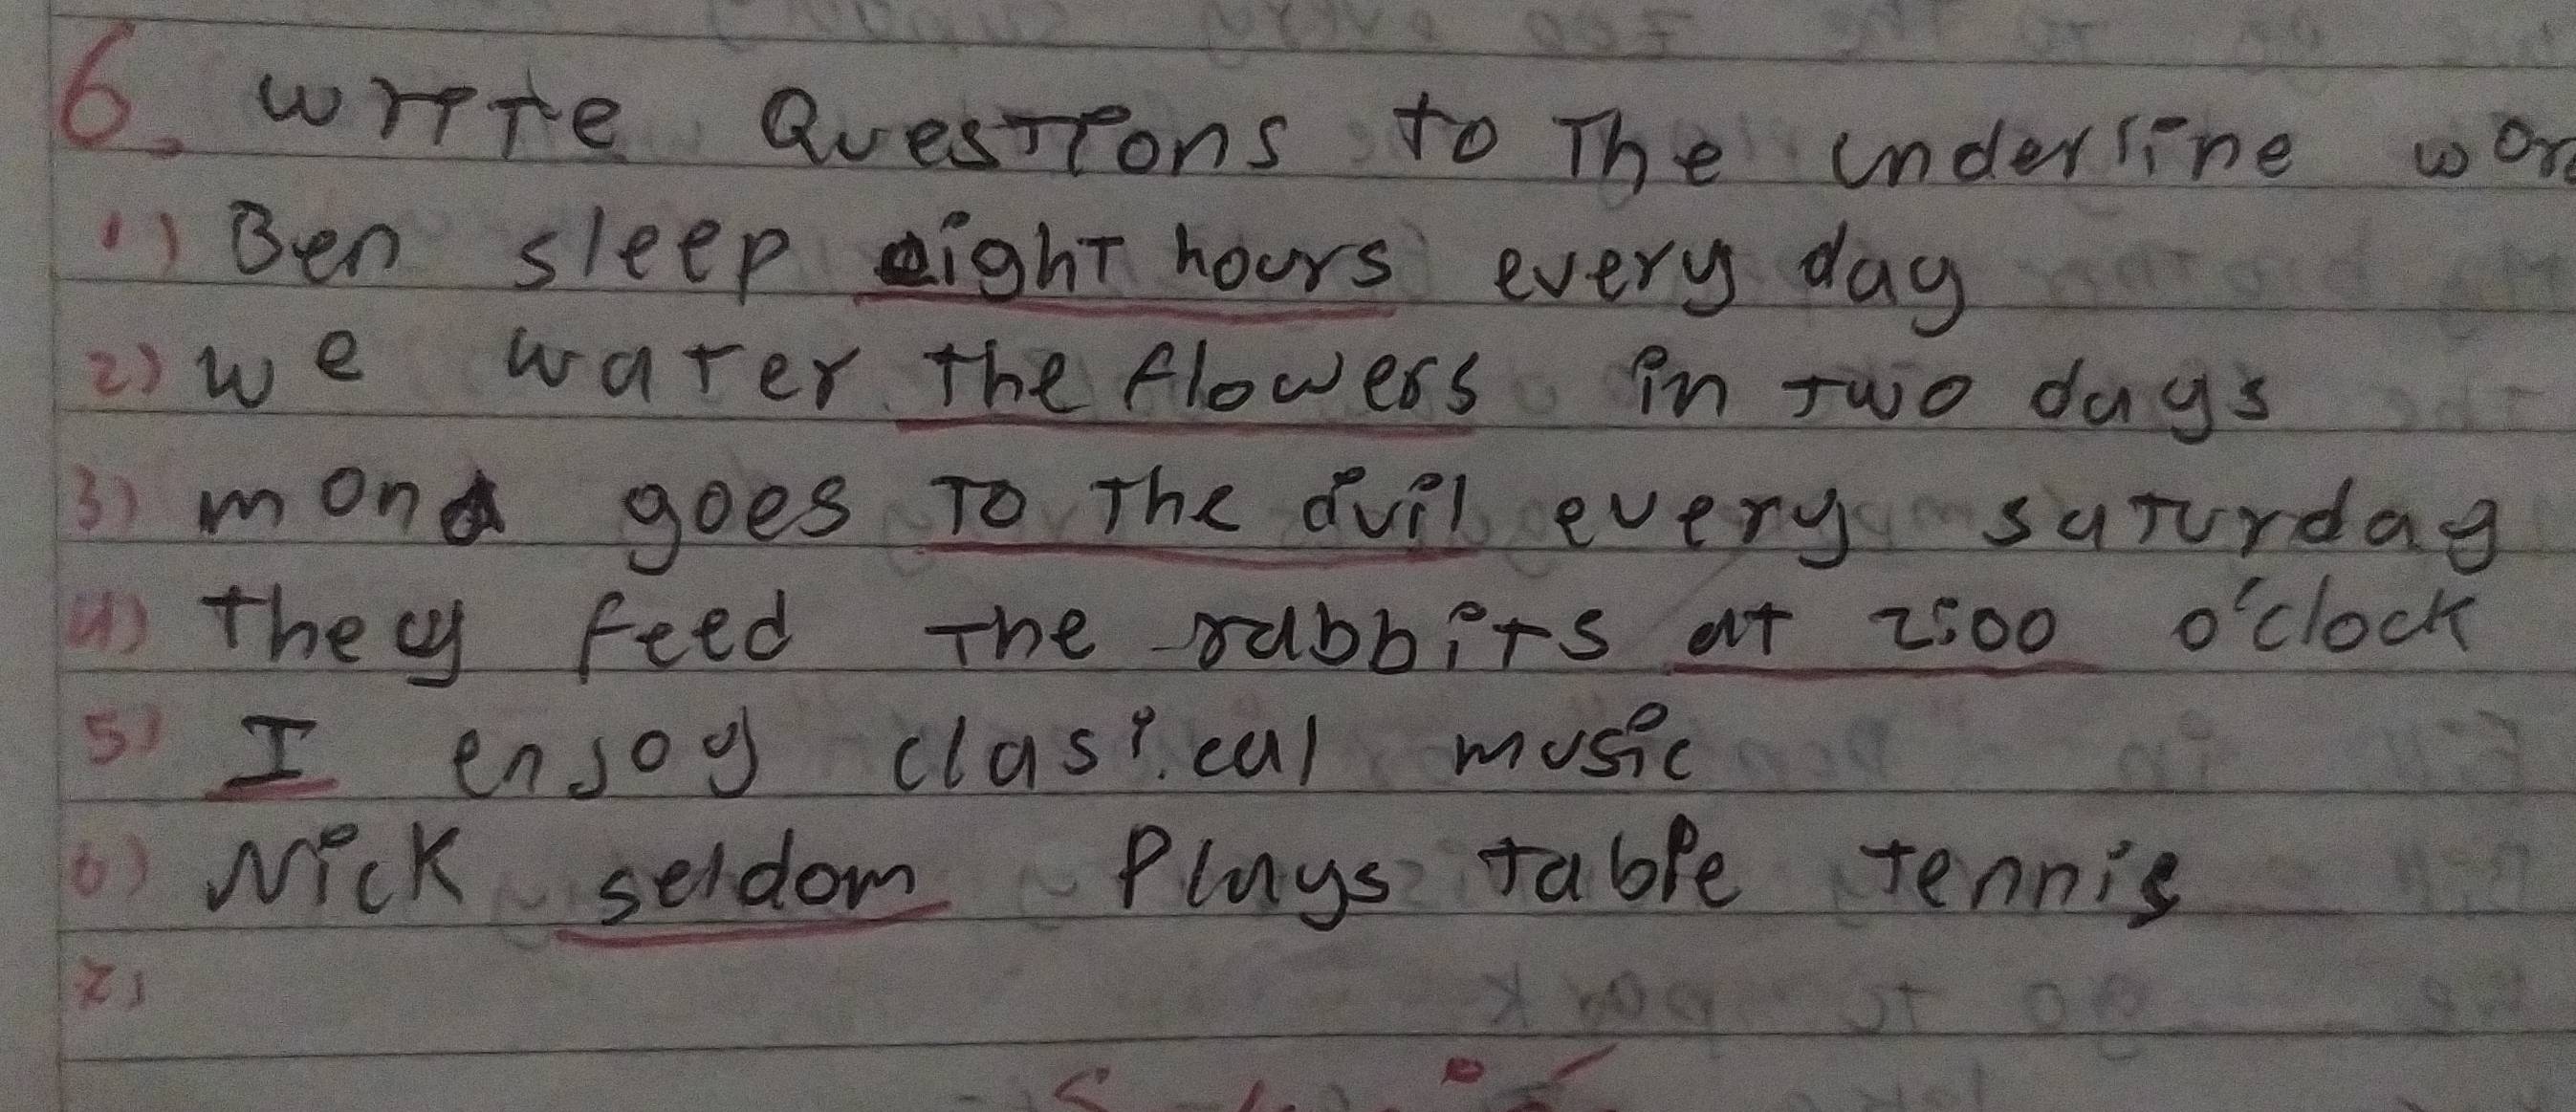 6. Write Questions to The underline
1) Ben sleep eight hours every day
2) we water the flowers in two days
3) mona goes To The dvil every saturday
4) they feed the rabbits at 2:00 o'clock
5) I enjoy clasical music
6) Nick seldom Plays table tennis